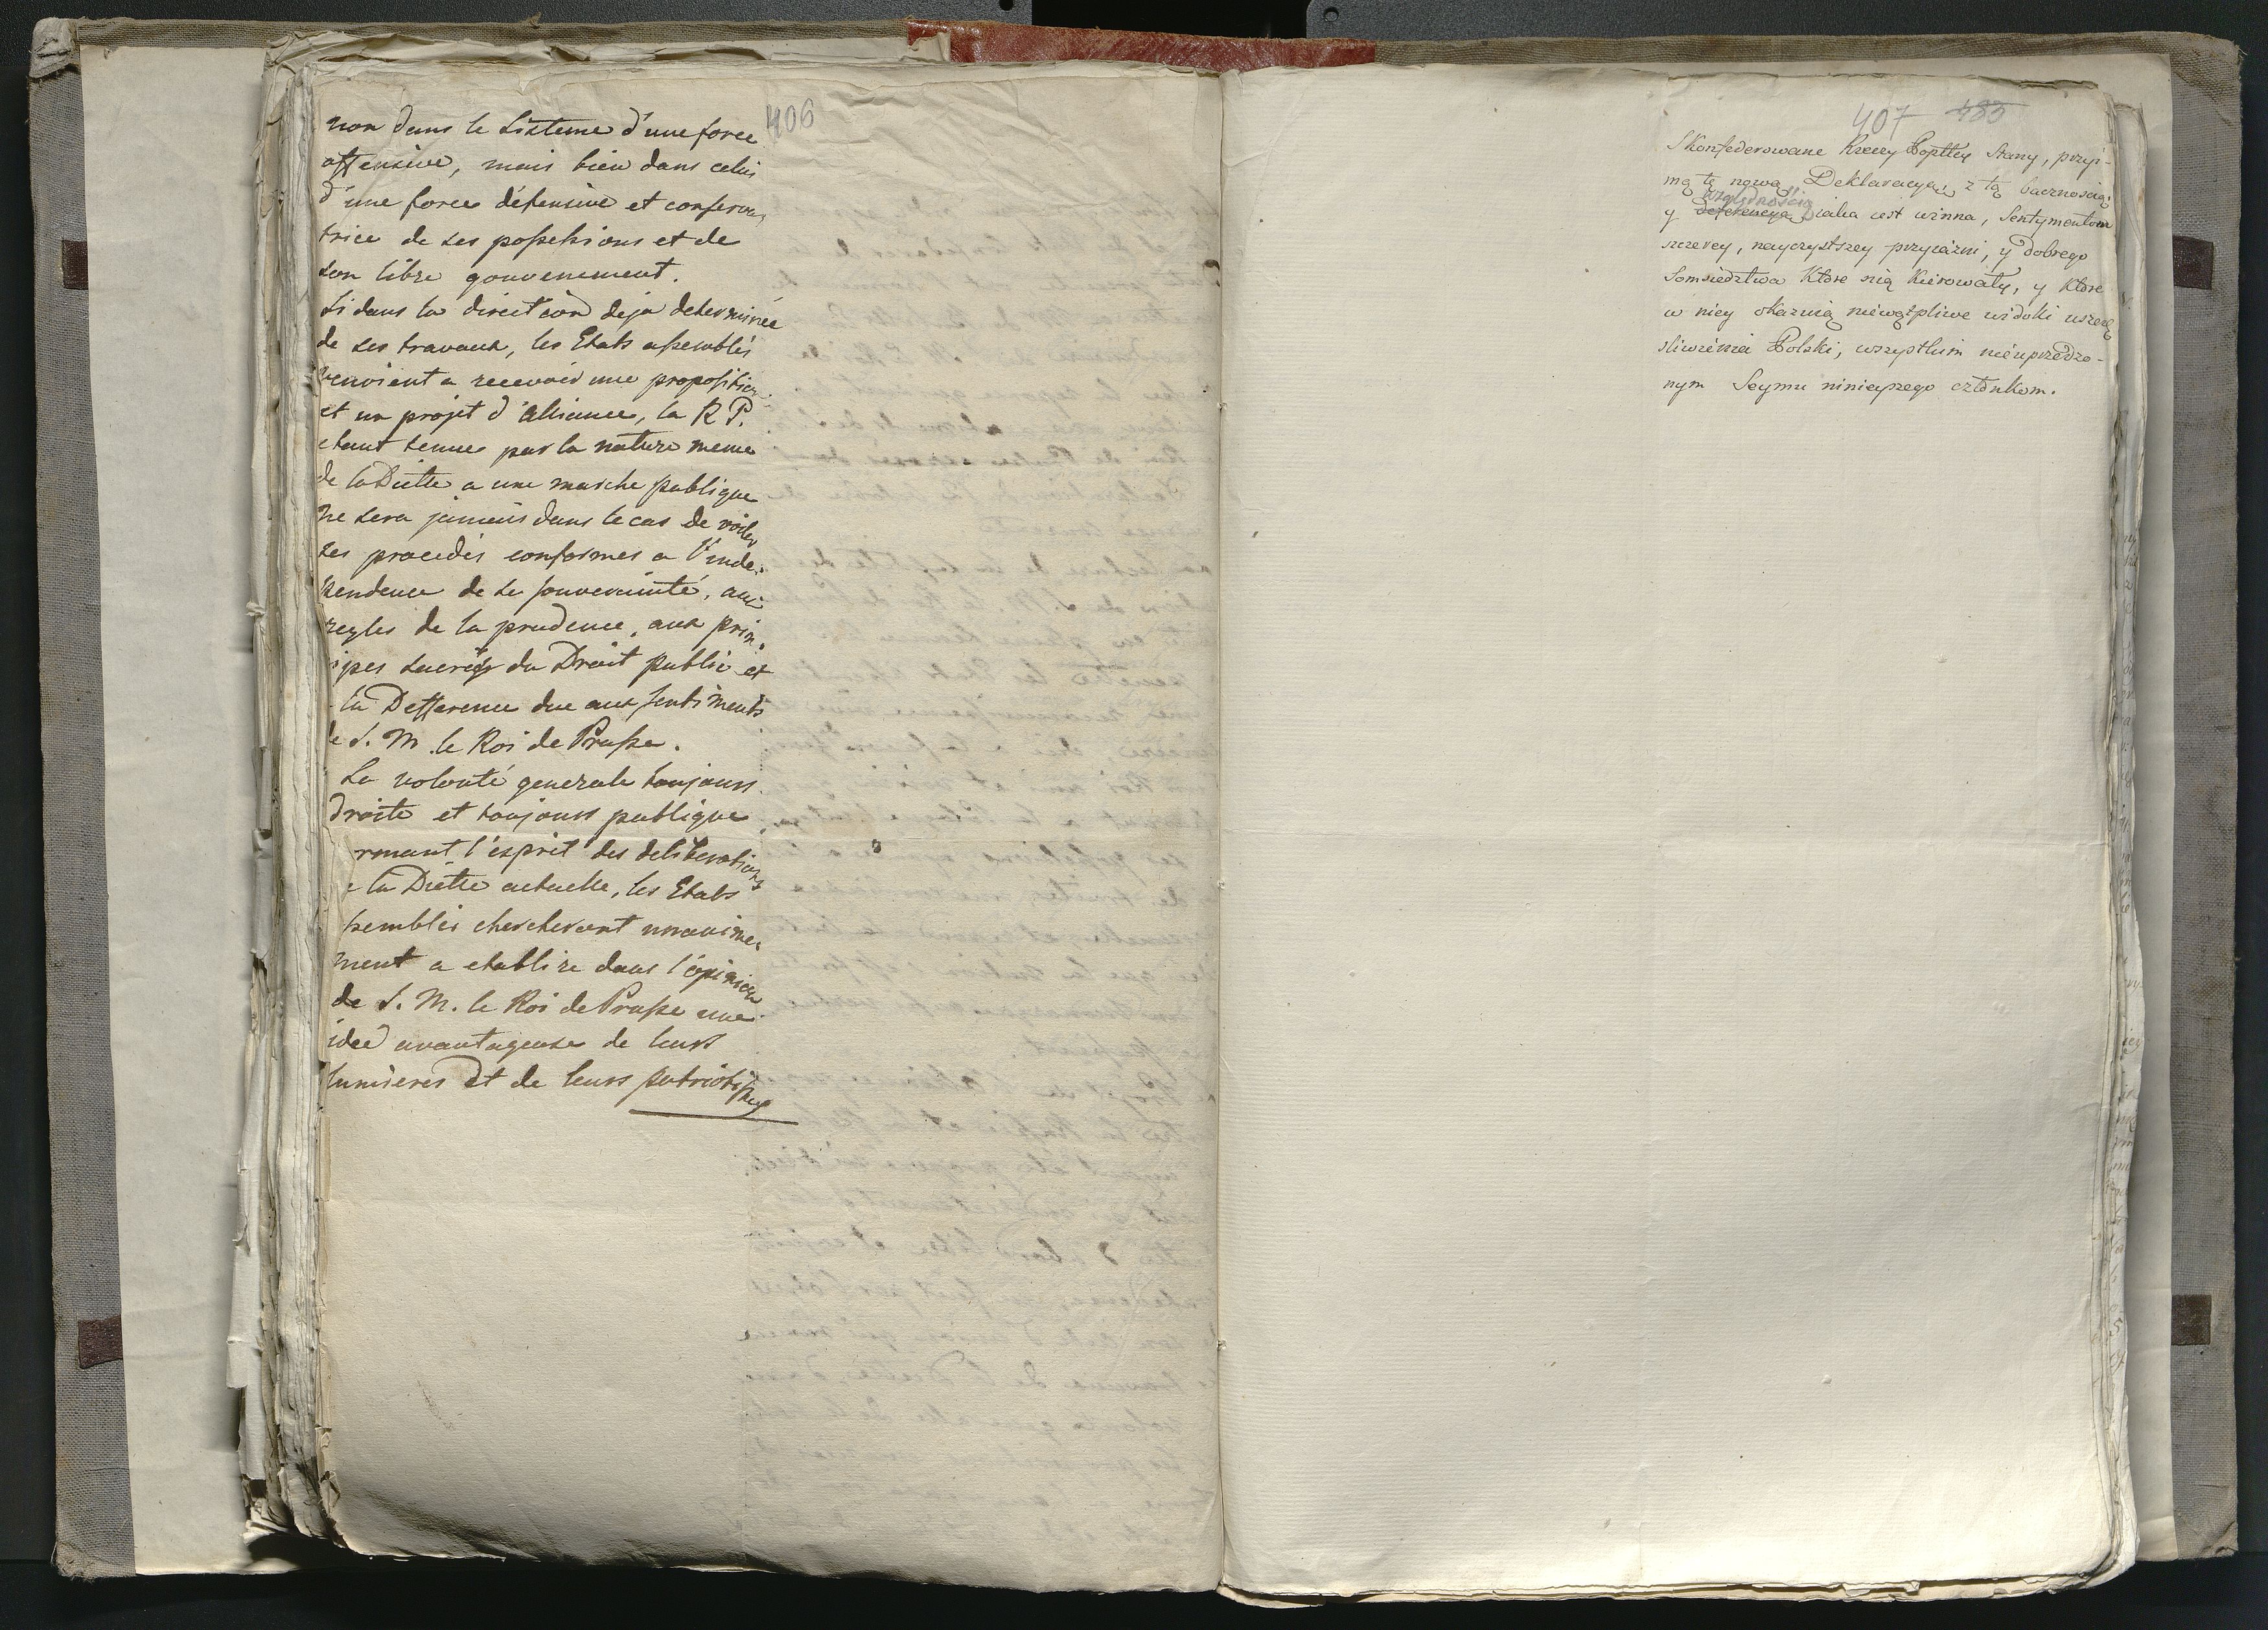 406
non dans le sisteme d'une force
offensive, mais bien dans celui
d'une force défensive et conserva,
trice de ses possessions et de
son libre gouvernement.
Si dans la direction deja determinée
de ses travaux, les Etats assemblés
venoient a recevoir une proposition
et un projet d'alliance, la R P.
etant tenue par la nature meme
de la Diette a une marche publique
ne sera jamais dans le cas de voiler
ses procedés conformes a l'inde,
pendence de sa souveraineté, aux
regles de la prudence, aux prin,
ipes sacrés du Droit public et
la Defference due aux sentiments
de S. M. le Roi de Prusse.
La volonté generale toujours
droite et toujours publique
rmant l'esprit des deliberations
e la Diette actuelle, les Etats
semblés chercheront unanime,
ment a etablire dans l'opinion
de S. M. le Roi de Prusse une
idee avantageuse de leurs
lumieres et de leurs patriotisme
407 485
Skonfederowane Rzeczy Popltey Stany, przyi-
mą tę nową Deklaracyą, z tą bacznoscią;
względnością
y deferencyą jaka iest winna, Sentymentom
szczerey, nayczystszey przyiazni, y dobrego
Somsiedztwa Które nią Kierowały, y Które
w niey okazuią niewątpliwe widoki uszczę
sliwienia Polski, wszystkim nieuprzedzo-
nym Seymu ninieyszego członkom.